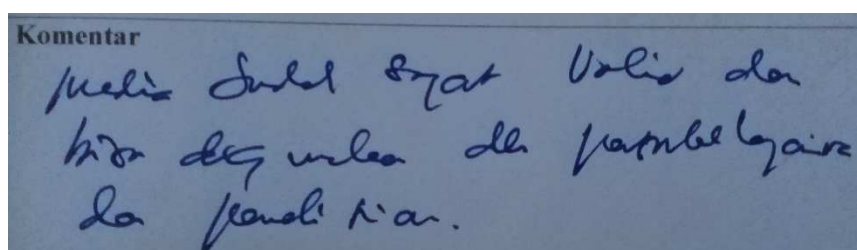 Komentar
Media Sudah Sangat Valid dan
bisa digunakan dlm pembelajaran
dan penelitian.